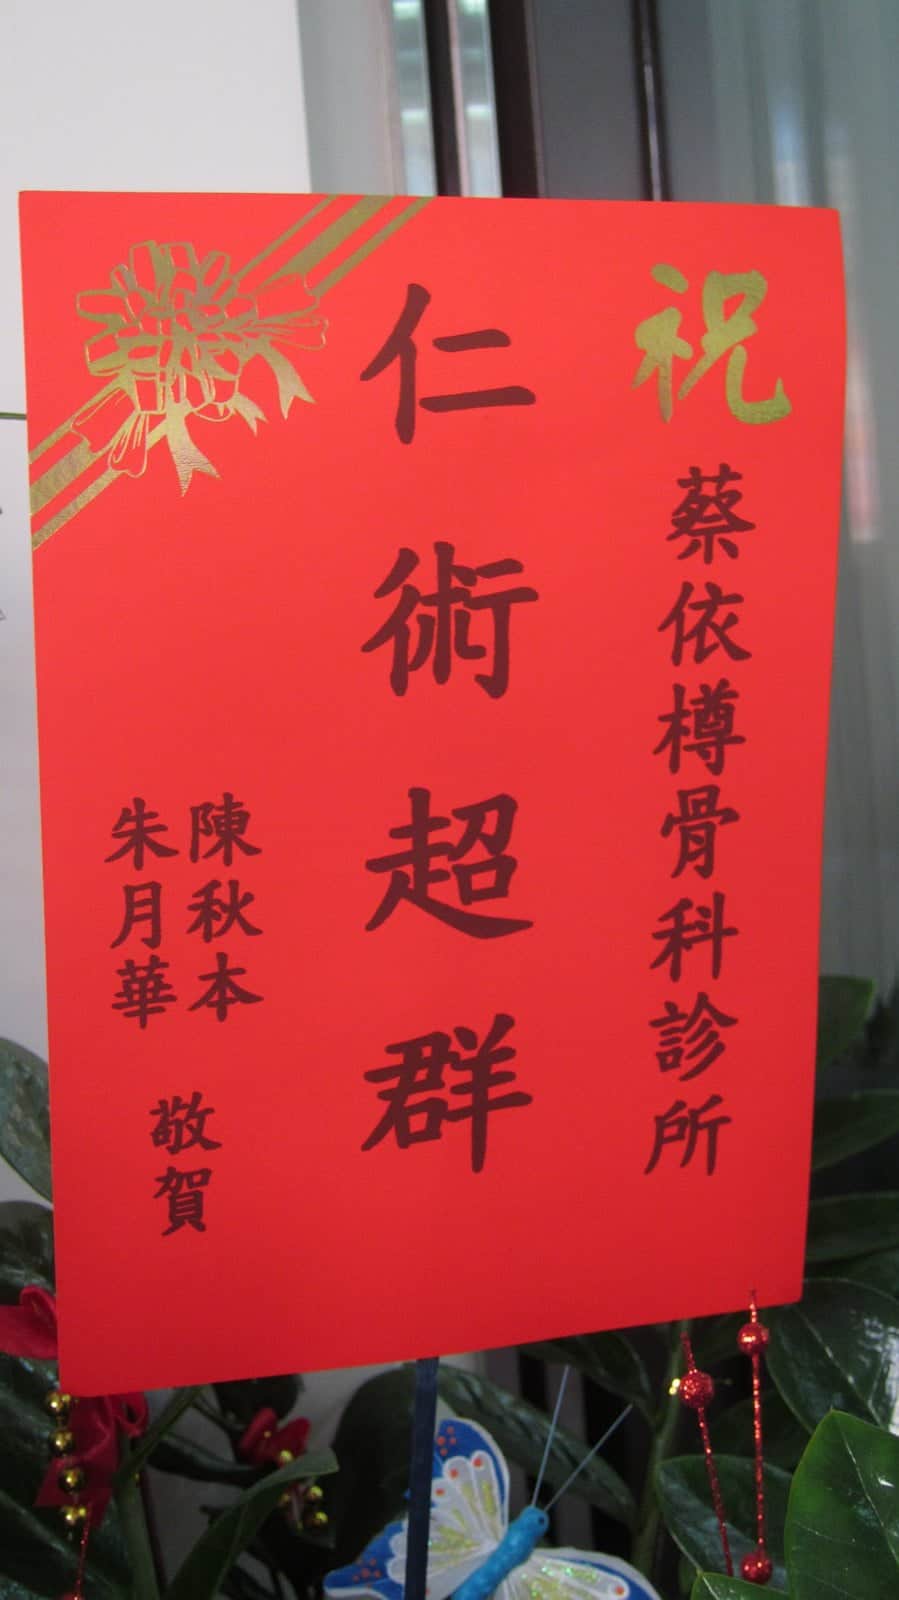 祝
蔡依樽骨科診所
仁術超群
陳秋本
朱月華
敬賀